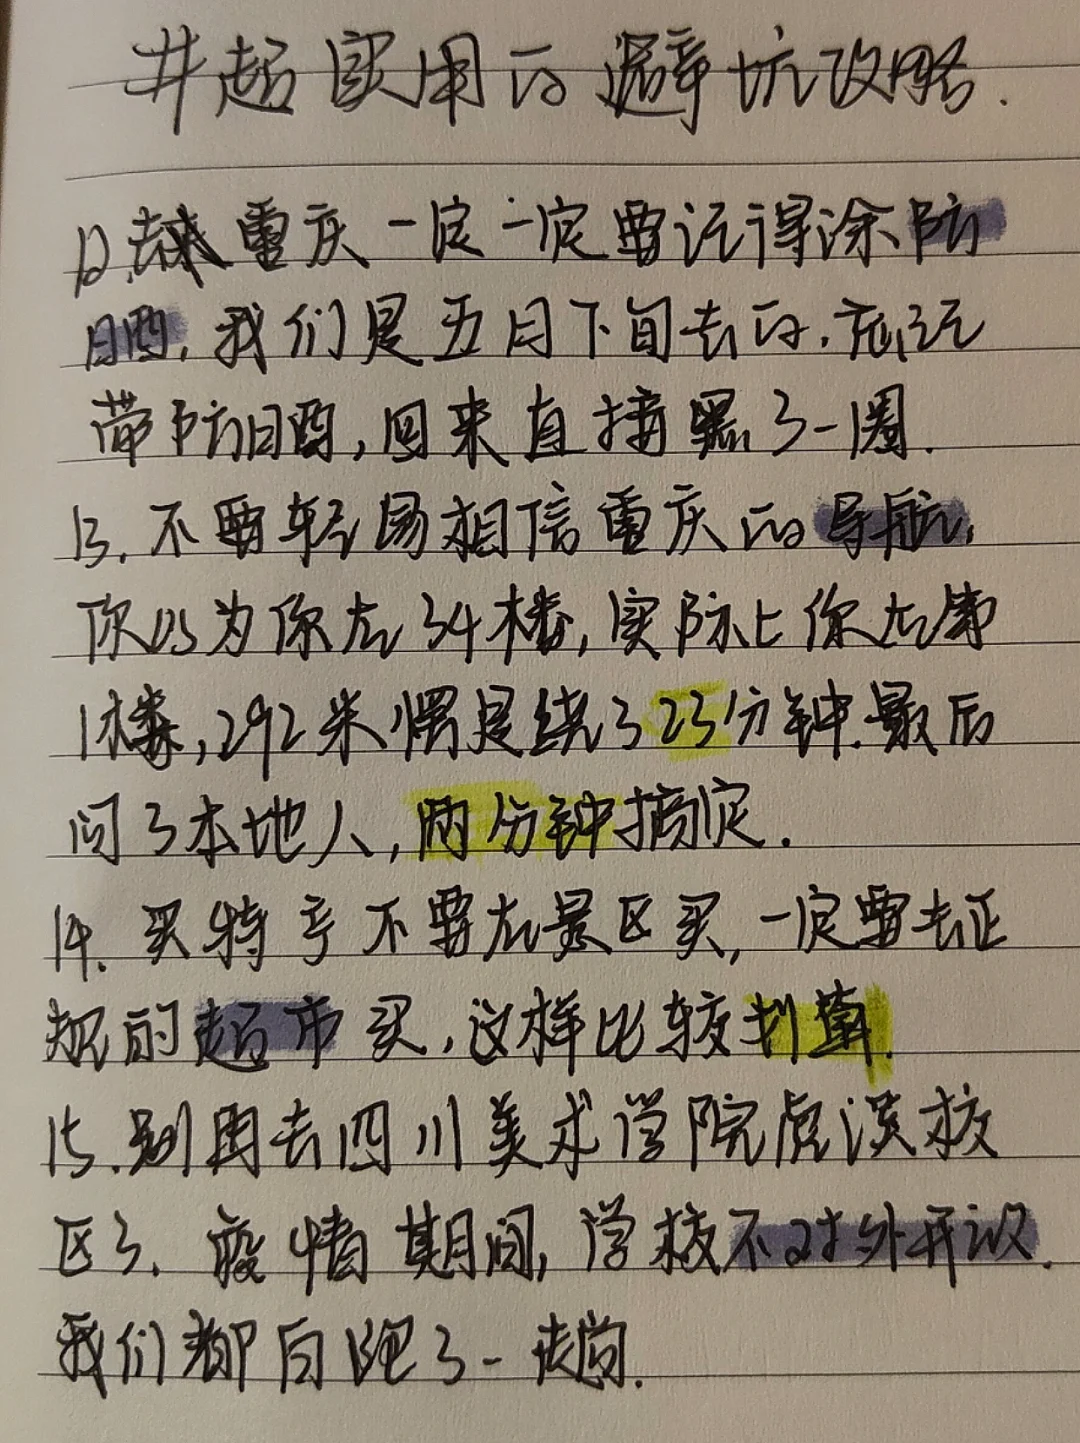 #超实用的避坑攻略.
12.去重庆一定一定要记得涂防
日晒,我们是五月下旬去的.忘记
带防日晒,回来直接黑了一圈.
13.不要轻易相信重庆的导航.
你以为你在34楼,实际上你在第
1楼,292米愣是绕了23分钟.最后
问了本地人,两分钟搞定.
14.买特产不要在景区买,一定要去正
规的超市买,这样比较划算.
15.别再去四川美术学院虎溪校
区了.疫情期间,学校不对外开设.
我们都白跑了一趟.